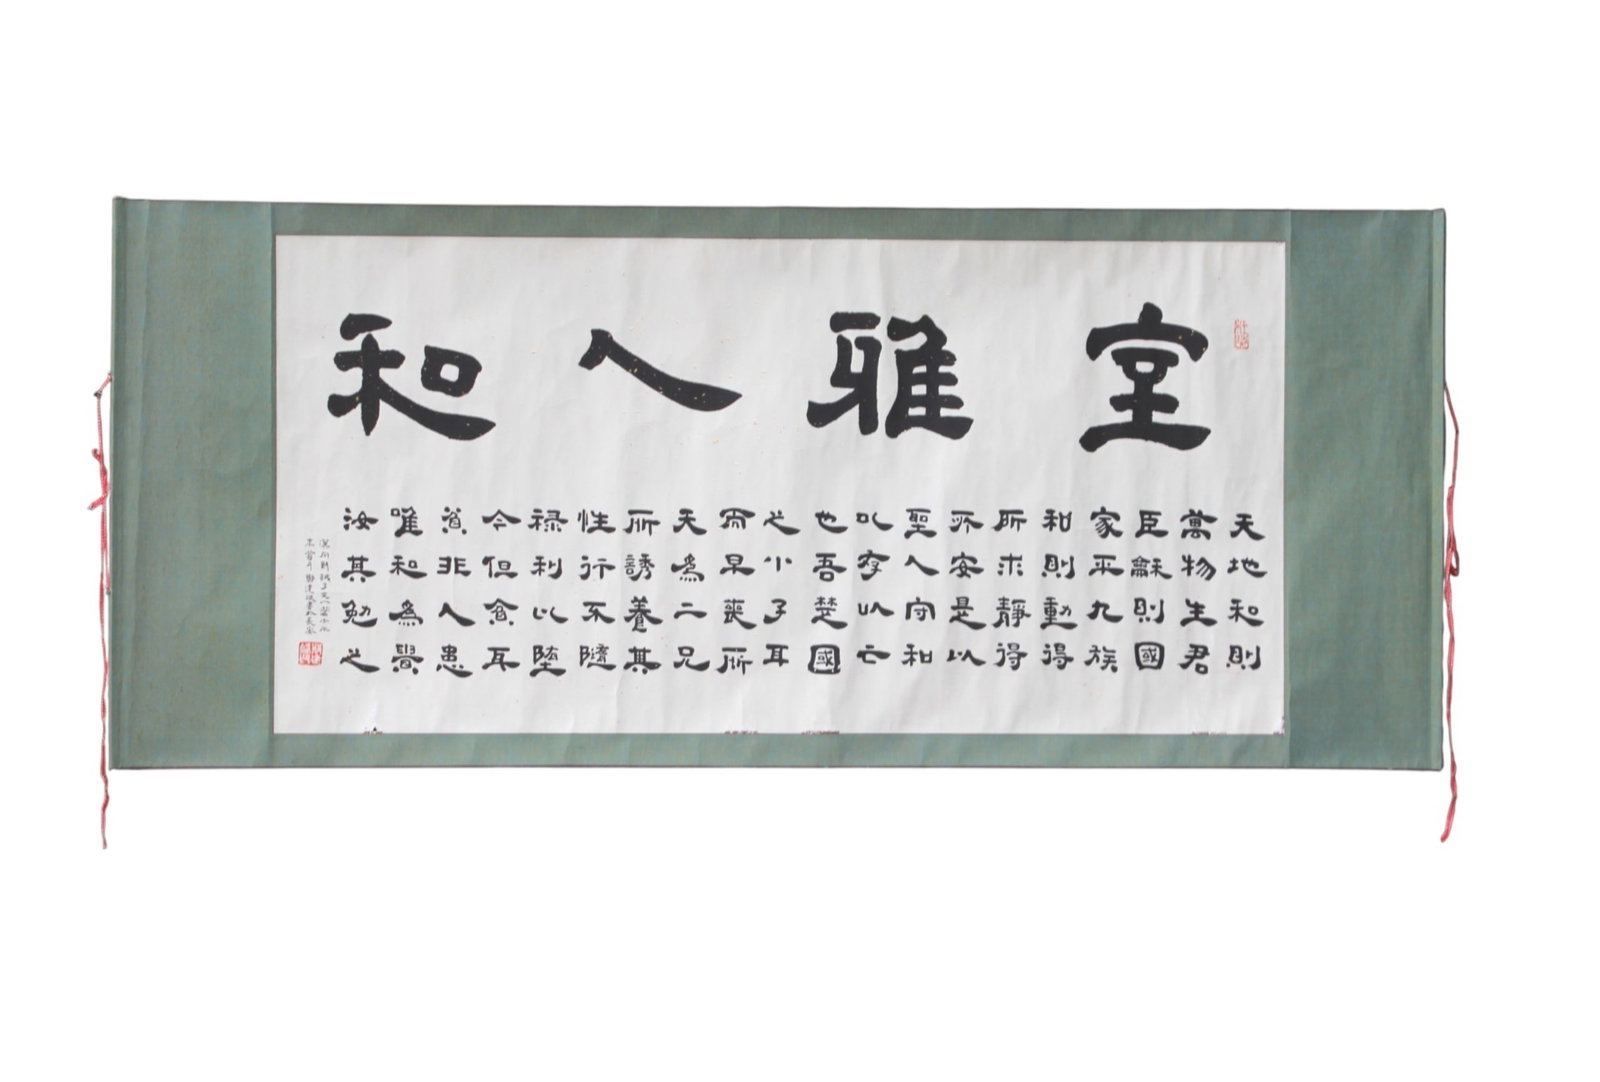 室雅人和
天地和則
萬物生君
臣龢則國
家平九族
和則動得
所求靜得
所安是以
聖人守和
以存以亡
也吾楚國
之小子耳
而早喪所
天為二兄
所誘養其
性行不隨
祿利以墮
今但貧耳
貧非人患
唯和為貴
汝其勉之
漢向朗誡子文一篇
書於長安